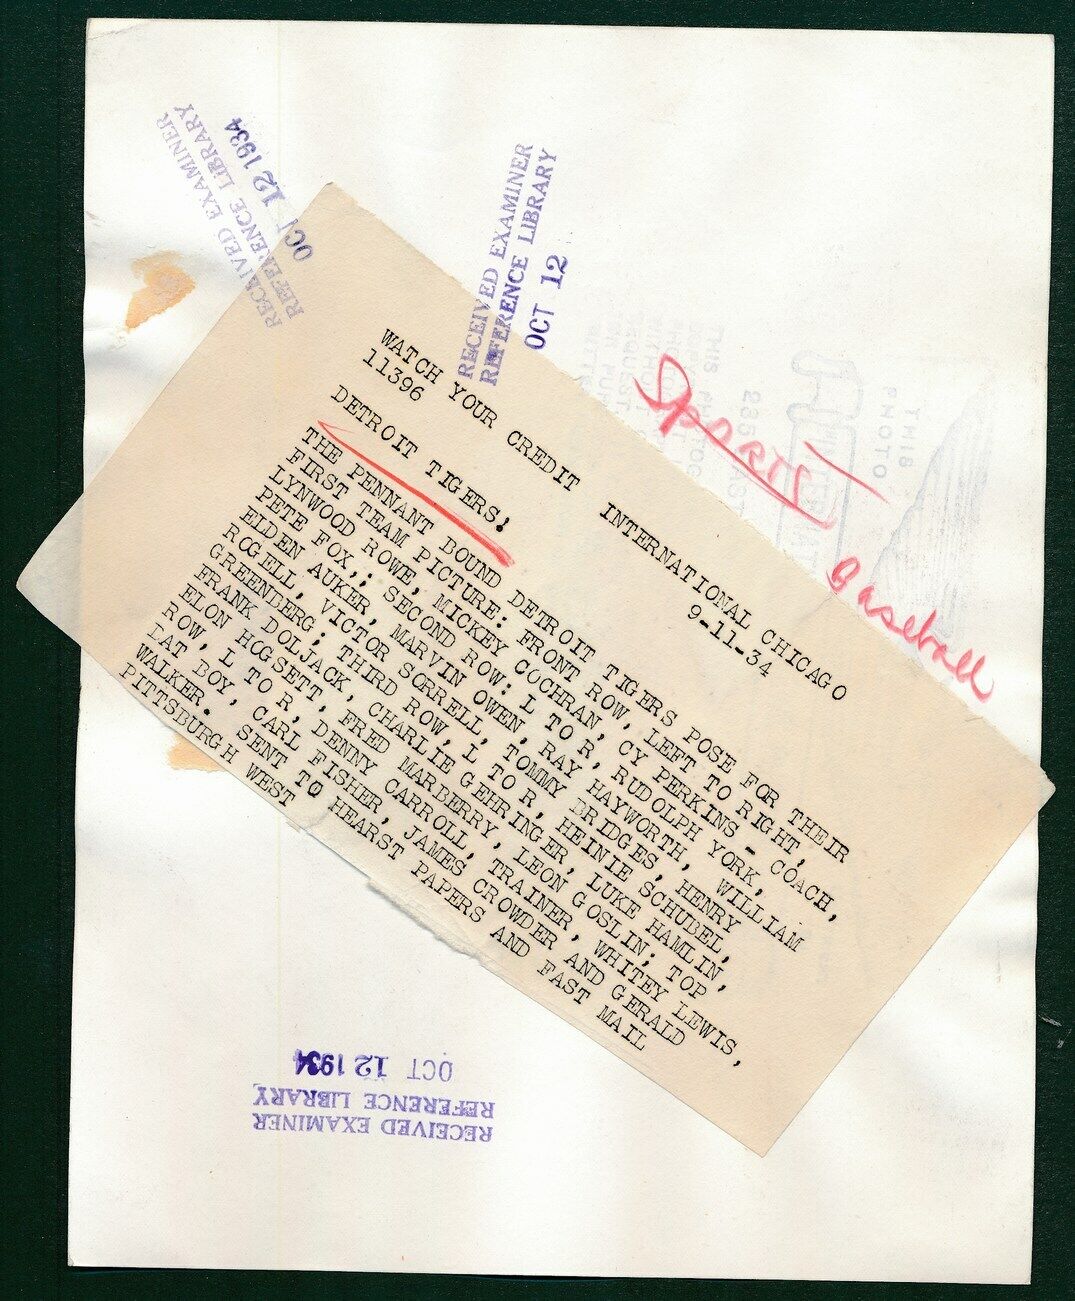 RECEIVED EXAMINER
REFERENCE LIBRARY
OCT 12 1934
RECEIVED EXAMINER
REFERENCE LIBRARY
OCT 12
Sports
Baseball
THIS
PHOTO
WATCH YOUR CREDIT INTERNATIONAL CHICAGO
11396 9-11-34
DETROIT TIGERS!
THE PENNANT BOUND DETROIT TIGERS POSE FOR THEIR
FIRST TEAM PICTURE: FRONT ROW, LEFT TO RIGHT,
LYNWOOD ROWE, MICKEY COCHRAN, CY PERKINS - COACH,
PETE FOX,; SECOND ROW: L TO R, RUDOLPH YORK,
ELDEN AUKER, MARVIN OWEN, RAY HAYWORTH, WILLIAM
ROGELL, VICTOR SORRELL, TOMMY BRIDGES, HENRY
GREENDERG; THIRD ROW, L TO R, HEINIE SCHUBEL,
FRANK DOLJACK, CHARLIE GEHRINGER, LUKE HAMLIN,
ELON HOGSETT, FRED MARBERRY, LEON GOSLIN; TOP
ROW, L TO R, DENNY CARROLL, TRAINER, WHITEY LEWIS,
DAT BOY, CARL FISHER, JAMES CROWDER AND GERALD
WALKER. SENT TO HEARST PAPERS AND FAST MAIL
PITTSBURGH WEST
RECEIVED EXAMINER
REFERENCE LIBRARY
OCT 12 1934